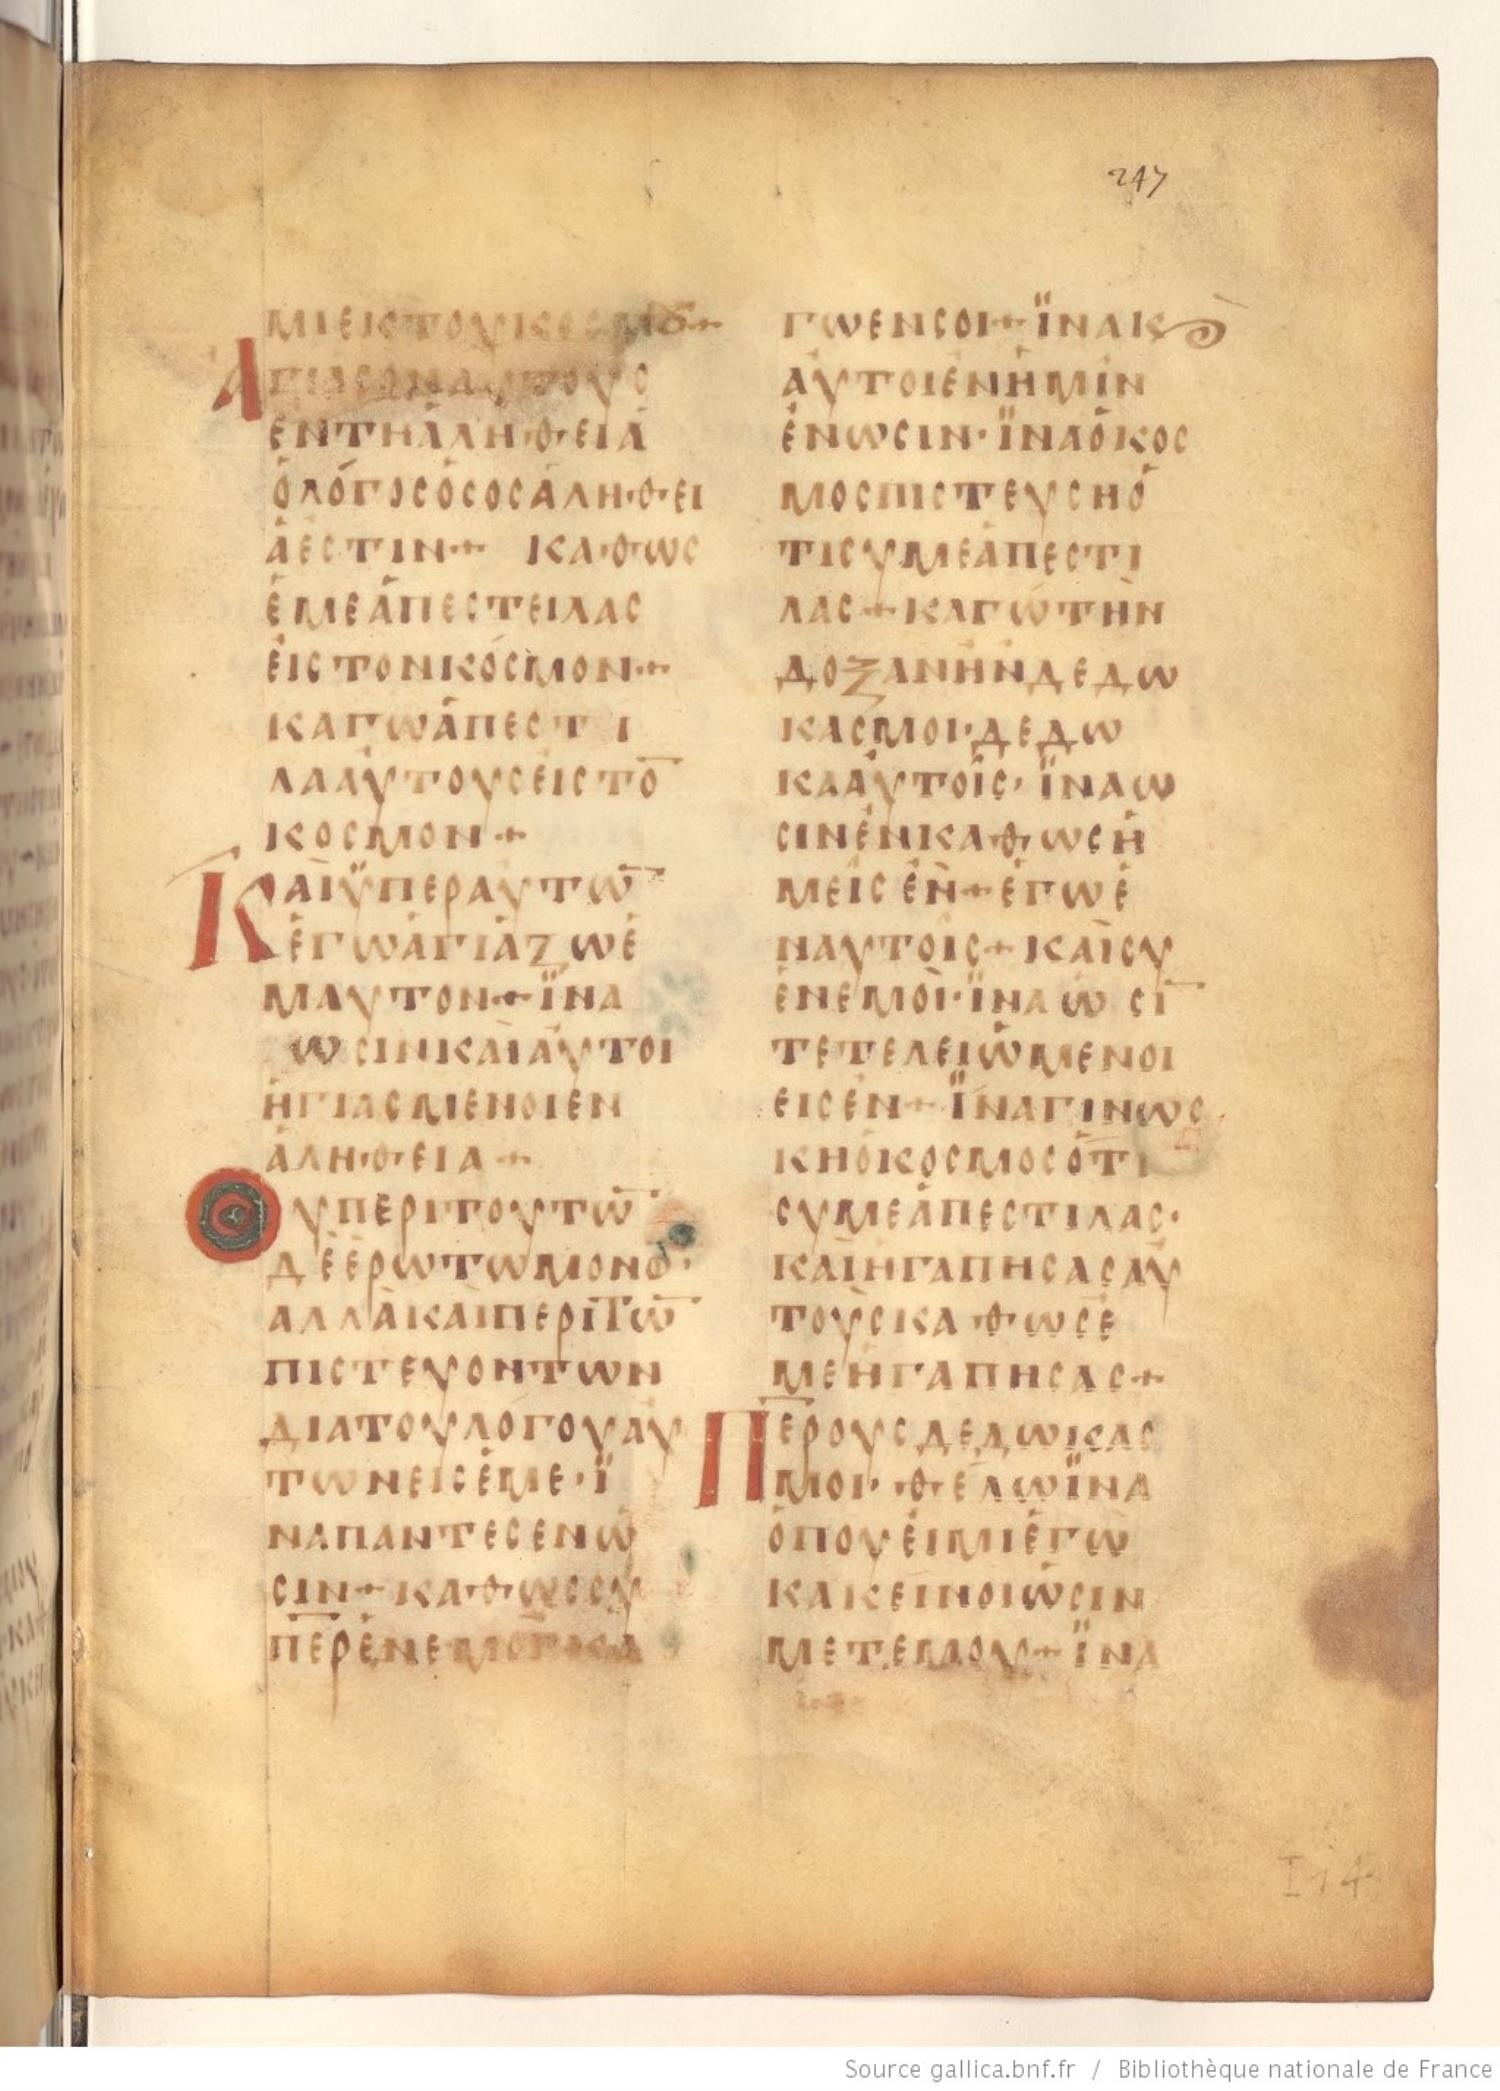 247
ΜΙΕΚΤΟΥΚΟΣΜȢ+
ΑΓΙΑΣΟΝΑΥΤΟΥΣ
ΕΝΤΗΑΛΗΘΕΙΑ
ΟΛΟΓΟΣΟΣΟΣΑΛΗΘΕΙ
ΑΕΣΤΙΝ+ ΚΑΘΩΣ
ΕΜΕΑΠΕΣΤΕΙΛΑΣ
ΕΙΣΤΟΝΚΟΣΜΟΝ+
ΚΑΓΩΑΠΕΣΤΙ
ΛΑΑΥΤΟΥΣΕΙΣΤΟ̅
ΚΟΣΜΟΝ+
ΚΑΙΫΠΕΡΑΥΤΩ̅
ΕΓΩΑΓΙΑΖΩΕ
ΜΑΥΤΟΝ+ΪΝΑ
ΩΣΙΝΚΑΙΑΥΤΟΙ
ΗΓΙΑΣΜΕΝΟΙΕΝ
ΑΛΗΘΕΙΑ+
ΟΥΠΕΡΙΤΟΥΤΩ̅
ΔΕΕΡΩΤΩΜΟΝΟ·
ΑΛΛΑΚΑΙΠΕΡΙΤΩ̅
ΠΙΣΤΕΥΟΝΤΩΝ
ΔΙΑΤΟΥΛΟΓΟΥΑΥ
ΤΩΝΕΙΣΕΜΕ·Ϊ
ΝΑΠΑΝΤΕΣΕΝΩ
ΣΙΝ+ΚΑΘΩΣΣΥ
Π̅Ε̅ΡΕΝΕΜΟΙΚΑ
ΓΩΕΝΣΟΙ+ΪΝΑΚ
ΑΥΤΟΙΕΝΗΜΙΝ
ΕΝΩΣΙΝ·ΪΝΑΟΚΟΣ
ΜΟΣΠΙΣΤΕΥΣΗΟ
ΤΙΣΥΜΕΑΠΕΣΤΙ
ΛΑΣ+ΚΑΓΩΤΗΝ
ΔΟΞΑΝΗΝΔΕΔΩ
ΚΑΣΜΟΙ·ΔΕΔΩ
ΚΑΑΥΤΟΙΣ·ΪΝΑΩ
ΣΙΝΕΝΚΑΘΩΣΗ
ΜΕΙΣΕΝ+ΕΓΩΕ
ΝΑΥΤΟΙΣ+ΚΑΙΣΥ
ΕΝΕΜΟΙ·ΪΝΑΩΣΙ̅
ΤΕΤΕΛΕΙΩΜΕΝΟΙ
ΕΙΣΕΝ+ΪΝΑΓΙΝΩΣ
ΚΗΟΚΟΣΜΟΣΟΤΙ
ΣΥΜΕΑΠΕΣΤΙΛΑΣ·
ΚΑΙΗΓΑΠΗΣΑΣΑΥ
ΤΟΥΣΚΑΘΩΣΕ
ΜΕΗΓΑΠΗΣΑΣ+
Π̅Ε̅ΡΟΥΣΔΕΔΩΚΑΣ
ΜΟΙ·ΘΕΛΩΪΝΑ
ΟΠΟΥΕΙΜΙΕΓΩ
ΚΑΚΕΙΝΟΙΩΣΙΝ
ΜΕΤΕΜΟΥ+ΪΝΑ
Source gallica.bnf.fr / Bibliothèque nationale de France